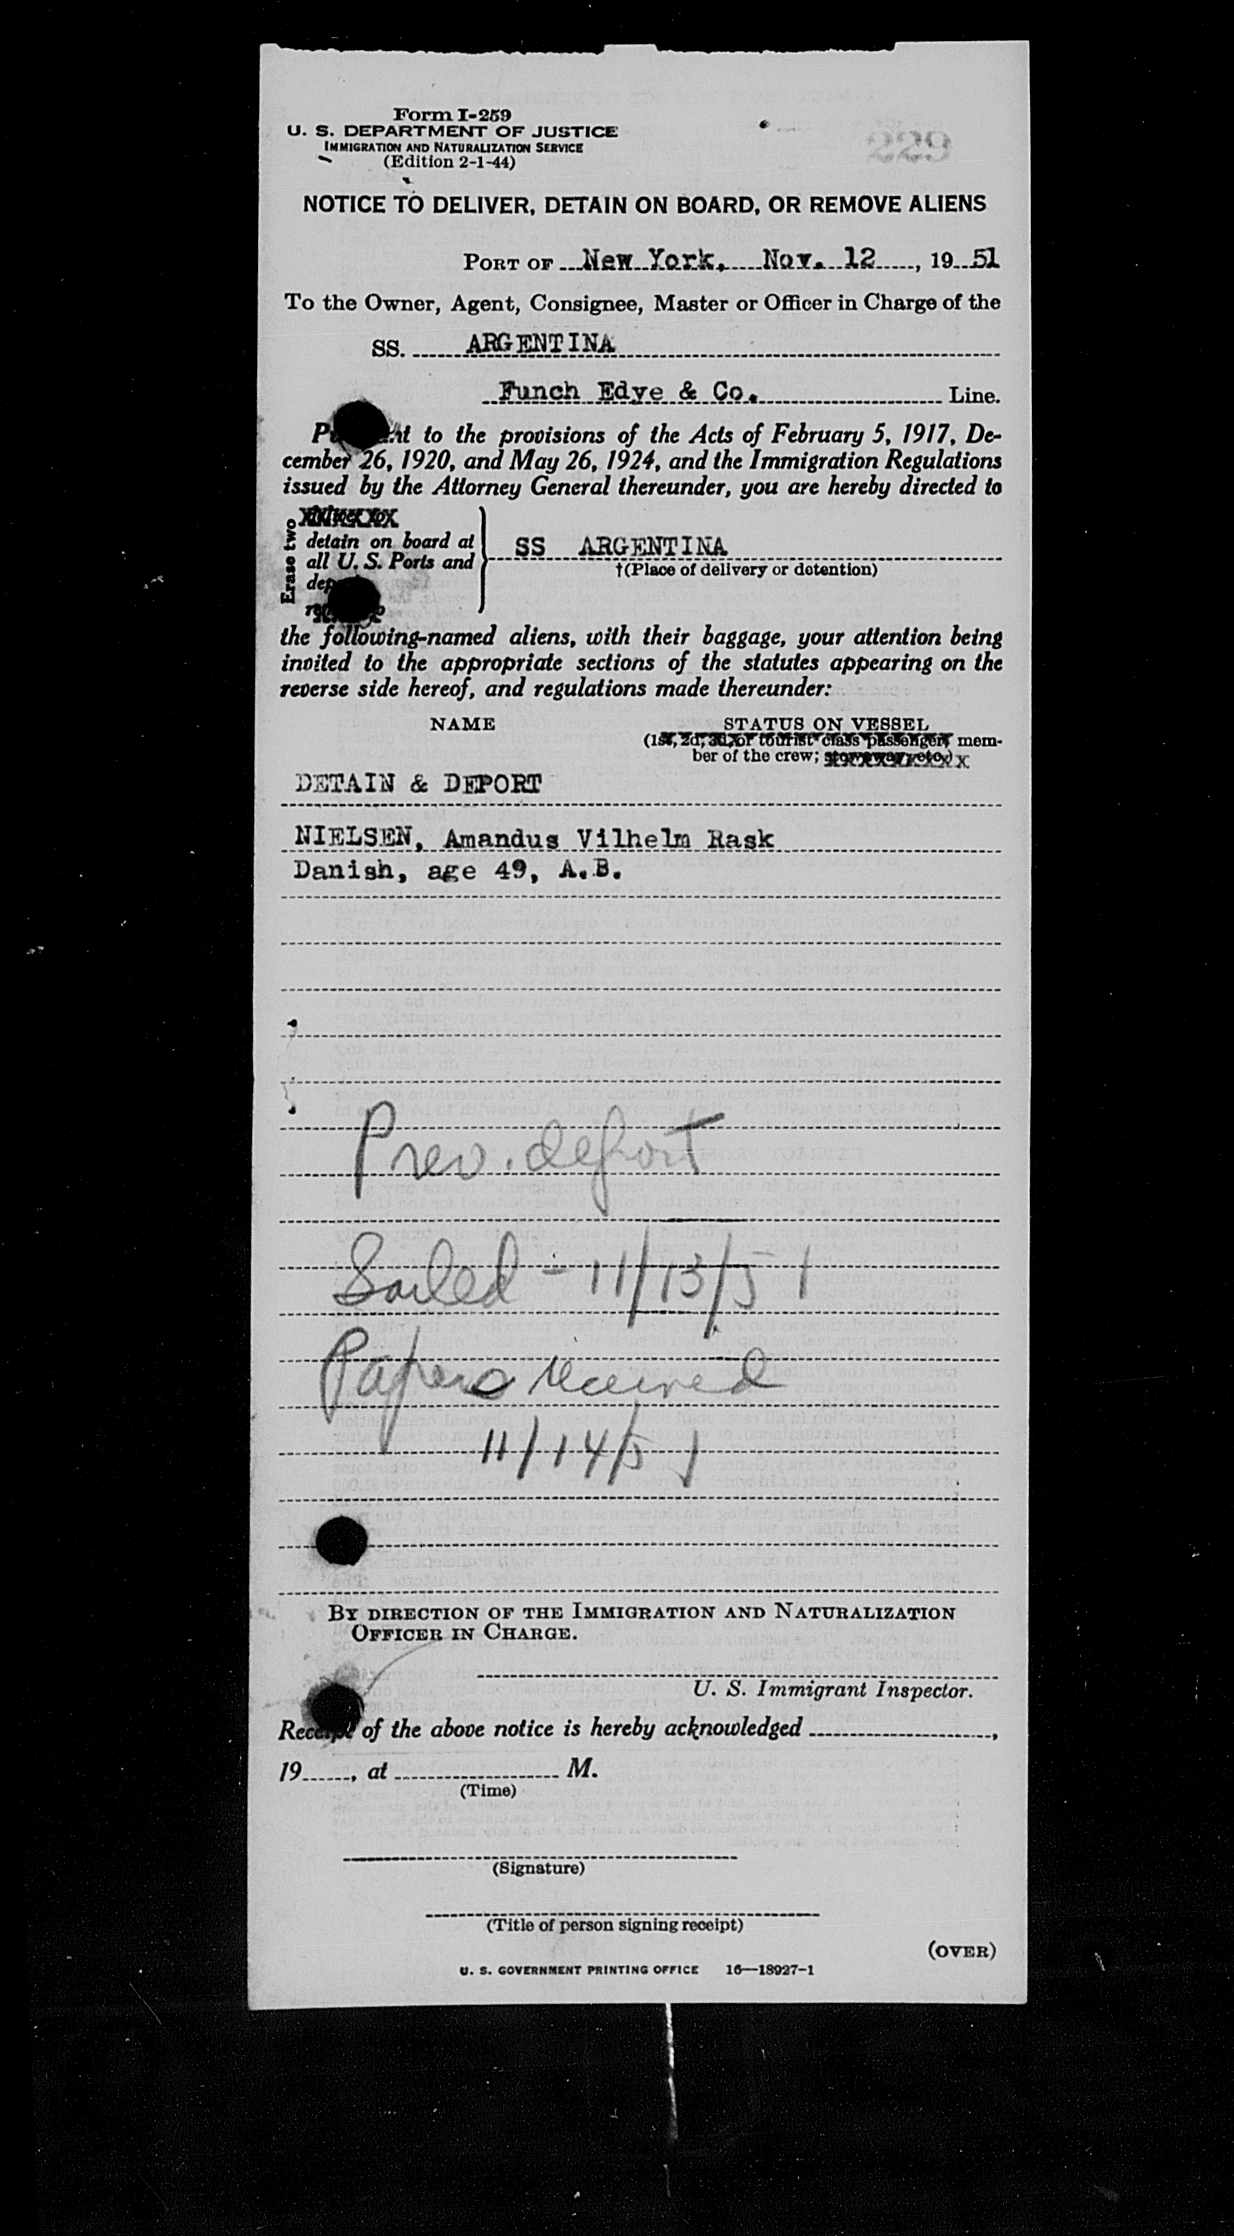 Form I-259
U. S. DEPARTMENT OF JUSTICE
IMMIGRATION AND NATURALIZATION SERVICE
(Edition 2-1-44)
NOTICE TO DELIVER, DETAIN ON BOARD, OR REMOVE ALIENS
PORT OF New York, Nov. 12, 1951
To the Owner, Agent, Consignee, Master or Officer in Charge of the
SS. ARGENTINA
Funch Edye & Co. Line.
to the provisions of the Acts of February 5, 1917, De-
cember 26, 1920, and May 26, 1924, and the Immigration Regulations
issued by the Attorney General thereunder, you are hereby directed to
Erase two
detain on board at
all U. S. Ports and
SS ARGENTINA
†(Place of delivery or detention)
the following-named aliens, with their baggage, your attention being
invited to the appropriate sections of the statutes appearing on the
reverse side hereof, and regulations made thereunder:
NAME
STATUS ON VESSEL
(1st, 2d, 3d, or tourist class passenger, mem-
ber of the crew;
DETAIN & DEPORT
NIELSEN, Amandus Vilhelm Rask
Danish, age 49, A.B.
Prev. deport
Sailed - 11/13/51
Papers received
11/14/51
BY DIRECTION OF THE IMMIGRATION AND NATURALIZATION
OFFICER IN CHARGE.
U. S. Immigrant Inspector.
Receipt of the above notice is hereby acknowledged ,
19 , at M.
(Time)
(Signature)
(Title of person signing receipt)
(OVER)
U. S. GOVERNMENT PRINTING OFFICE 16—18927-1